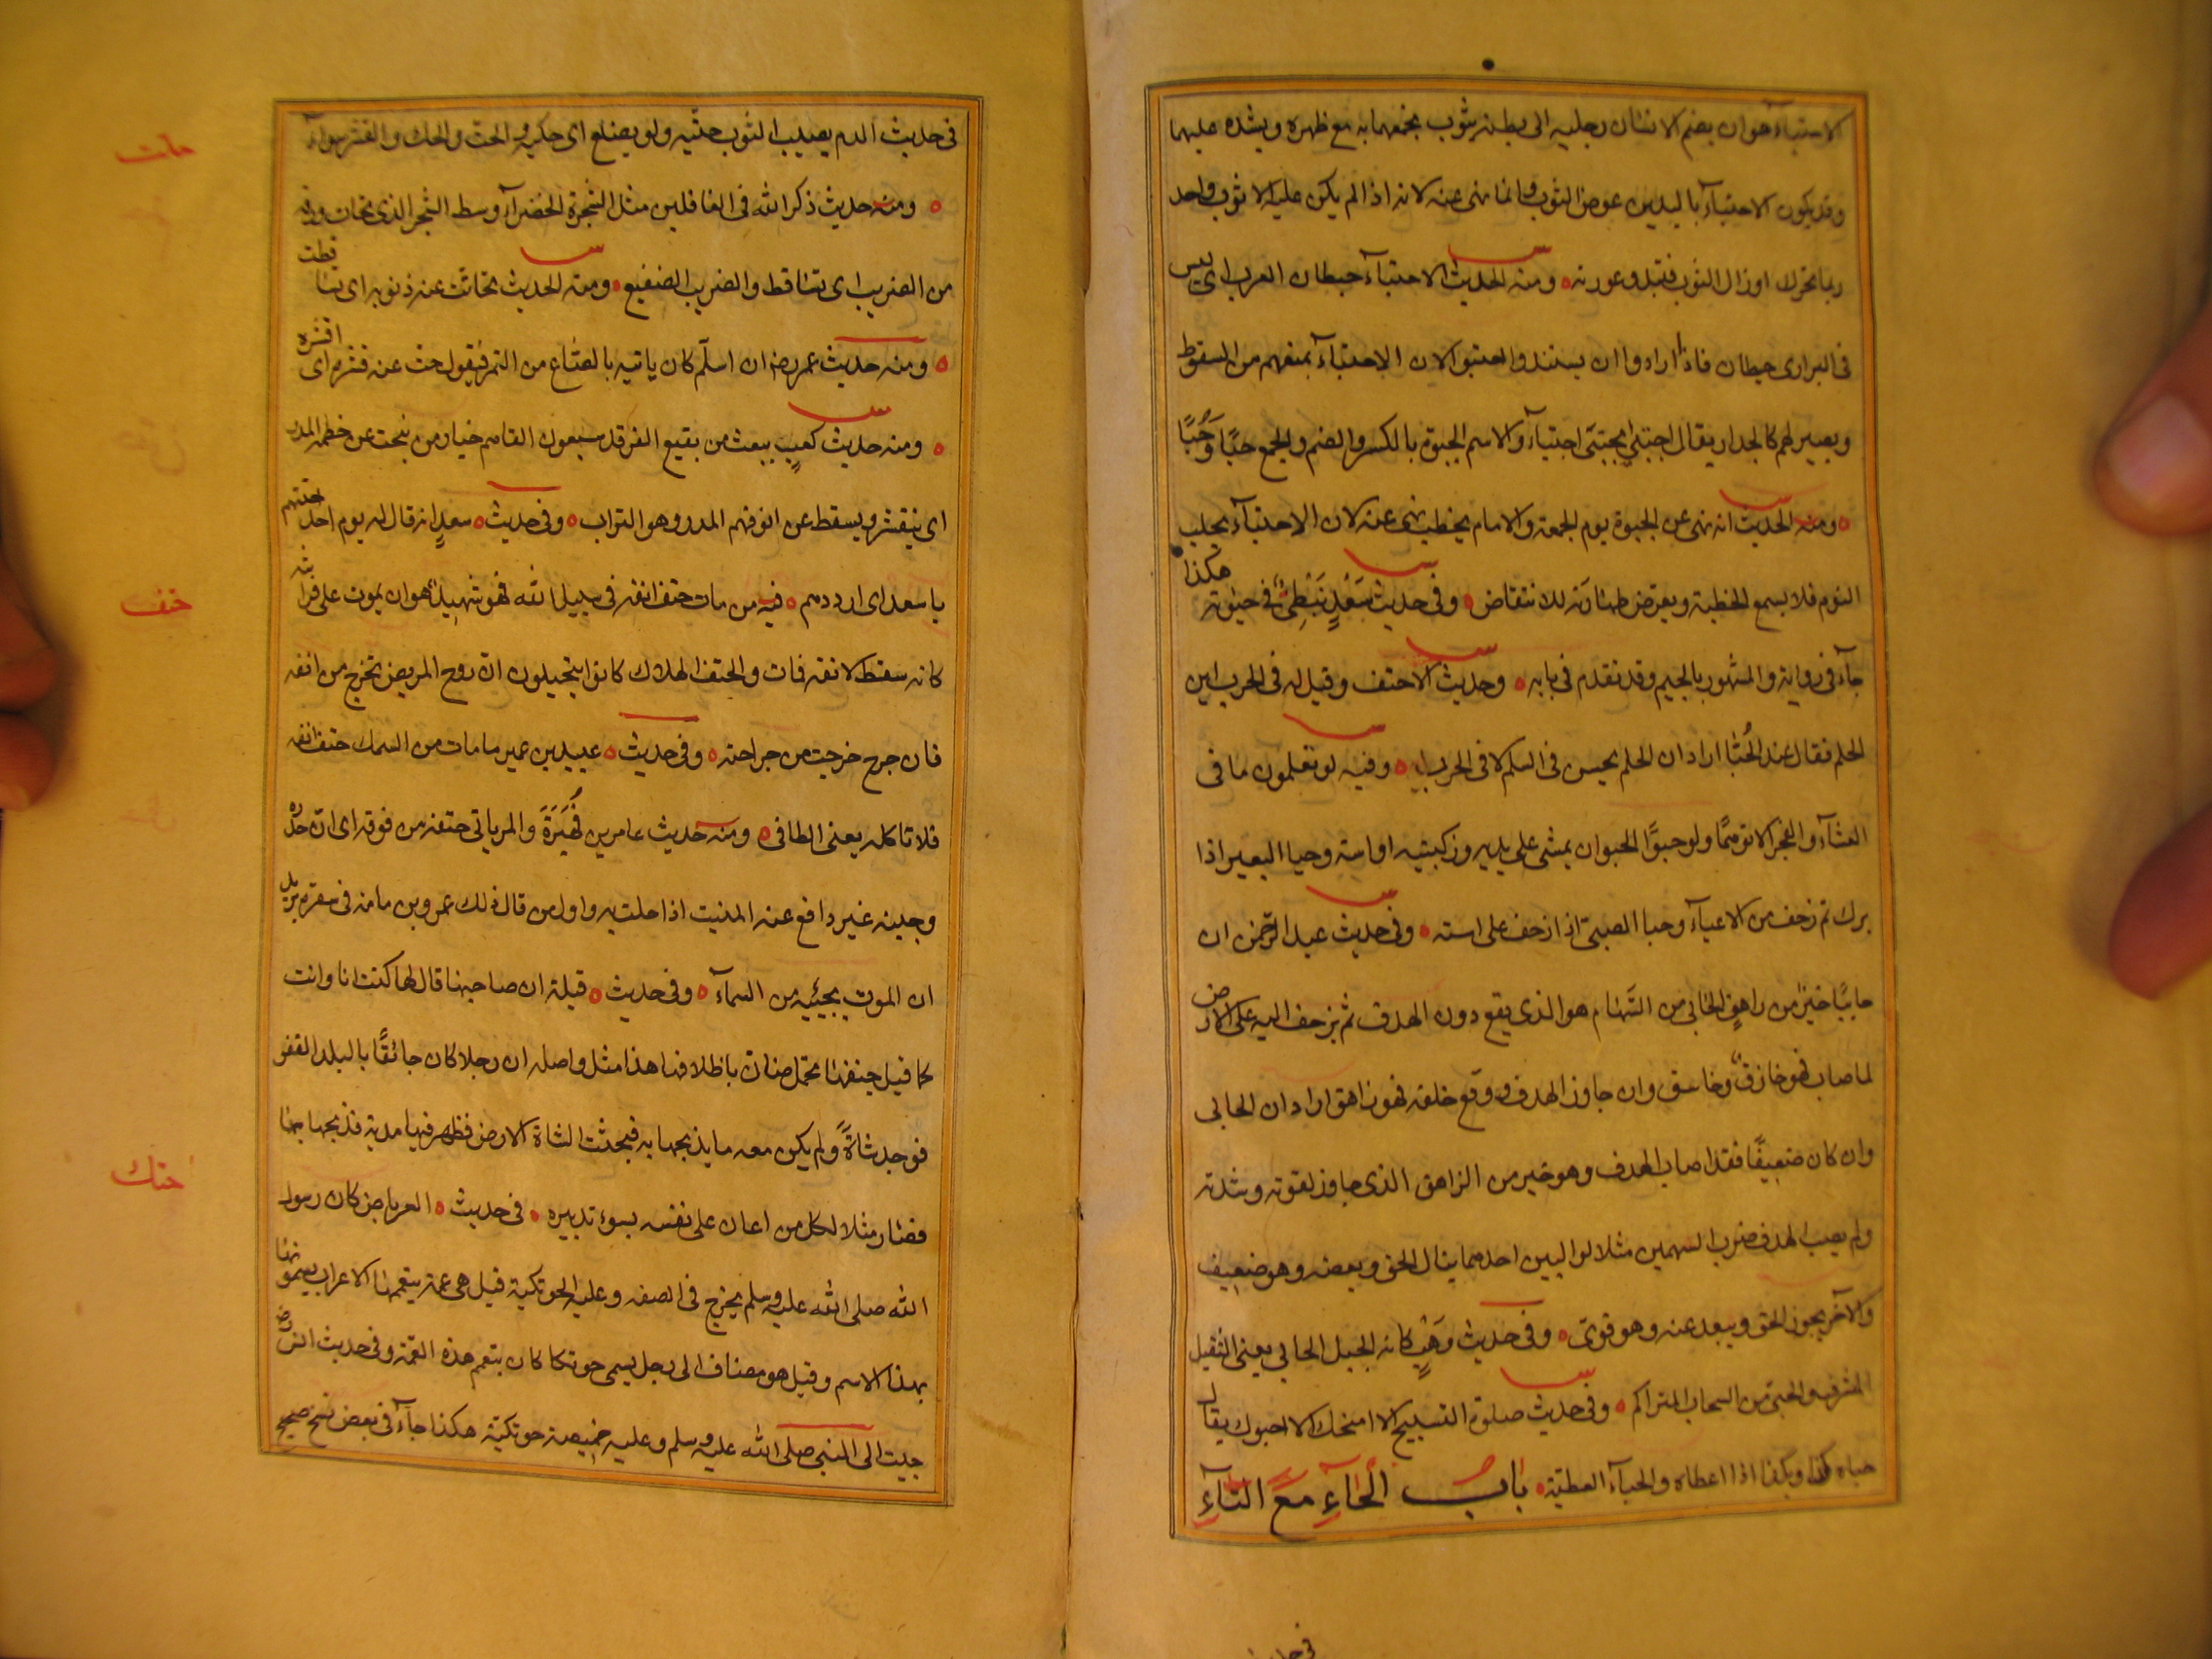 الاحتباء هو ان يضم الانسان رجليه الى بطنه بثوب يجمعهما به مع ظهره ويشده عليهما
وقد يكون الاحتباء باليدين عوض الثوب وانما نهى عنه لانه اذا لم يكن عليه الا ثوب واحد
ربما تحرك او زال الثوب فتبدو عورته ومنه الحديث الاحتباء حيطان العرب اي ليس
في البراري حيطان فاذا ارادوا ان يستندوا احتبوا لان الاحتباء يمنعهم من السقوط
ويصير لهم كالجدار يقال احتبى يحتبي احتباء والاسم الحبوة بالكسر والضم والجمع حبًا وحُبًا
ومنه الحديث انه نهى عن الحبوة يوم الجمعة والامام يخطب نهى عنه لان الاحتباء يجلب
النوم فلا يسمع الخطبة ويعرض طهارته للانتقاض وفي حديث سَعْدٍ نَبَطِيٌّ في حبوته هكذا
جآء في رواية والمشهور بالجيم وقد تقدم في بابه وحديث الاحنف وقيل له في الحرب اين
الحلم فقال عند الحُبَا اراد ان الحلم يحسن في السلم لا في الحرب وفيه لو تعلمون ما في
العشآء والفجر لاتوهمًا ولو حبوًا الحبو ان يمشي على يديه وركبتيه او استه وحبا البعير اذا
برك ثم زحف من الاعيآء وحبا الصبي اذا زحف على استه وفي حديث عبد الرحمن ان
حابيًا خيرٌ من زاهقٍ الحابي من السهام هو الذي يقع دون الهدف ثم يزحف اليه على الارض
لماصاب فهو خازق وخاسق وان جاوز الهدف ووقع خلفه فهو زاهق اراد ان الحابي
وان كان ضعيفًا فقد اصاب الهدف وهو خير من الزاهق الذي جاوز لقوته وشدته
ولم يصب الهدف ضرب السهمين مثلا لواليين احدهما ينال الحق وبعضه وهو ضعيف
والآخر يجوز الحق ويبعد عنه وهو قوي وفي حديث وَهْبٍ كانه الجبل الحابي يعني الثقيل
المشرف والحبي من السحاب المتراكم وفي حديث صلوة التسبيح الا امنحك الا احبوك يقال
حباه كذا وبكذا اذا اعطاه والحبآء العطية باب الحآء مع التآء
في حديث الدم يصيب الثوب حتيه ولو بضلع اى حكيه والحت والحك والقشر سوآء
حتت
ومنه حديث ذكر الله في الغافلين مثل الشجرة الخضرآء وسط الشجر الذي تحات ورقه
من الضريب اى تساقط والضريب الصقيع ومنه الحديث تحاتت عنه ذنوبه اى تساقطت
ومنه حديث عمر رض ان اسلم كان ياتيه بالصاع من التمر فيقول حت عنه قشره اى اقشره
ومنه حديث كعبٍ يبعث من بقيع الغرقد سبعون الفا هم خيار من ينحت عن خطمه المدر
اى ينقشر ويسقط عن انوفهم المدر وهو التراب وفي حديث سعدٍ انه قال له يوم احد احتتهم
يا سعد اى ارددهم فيه من مات حتف انفه في سبيل الله فهو شهيد هو ان يموت على فراشه
حتف
كانه سقط لانفه فمات والحتف الهلاك كانوا يتخيلون ان روح المريض تخرج من انفه
فان جرح خرجت من جراحته وفي حديث عبيد بن عمير ما مات من السمك حتف انفه
فلا تاكله يعني الطافي ومنه حديث عامر بن فُهَيرَةَ والمر ياتي حتفه من فوقه اى ان حذره
وجبنه غير دافع عنه المنية اذا حلت به واول من قال ذلك عمرو بن مامه في شعره يريد
ان الموت يجيئه من السمآء وفي حديث قيلة ان صاحبها قال لها كنت انا وانت
كما قيل حتفها تحمل ضان باظلافها هذا مثل واصله ان رجلا كان جائعًا بالبلد القفر
فوجد شاةً ولم يكن معه ما يذبحها به فبحثت الشاة الارض فظهر فيها مدية فذبحها بها
فصار مثلا لكل من اعان على نفسه بسوء تدبيره في حديث العرباض كان رسول
حتك
الله صلى الله عليه وسلم يخرج في الصفة وعليه الحوتكية قيل هي عمة يتعمها الاعراب يسمونها
بهذا الاسم وقيل هو مضاف الى رجل يسمى حوتكا كان يتعم هذه العمة وفي حديث انس رض
جيت الى النبي صلى الله عليه وسلم وعليه خميصة حوتكية هكذا جآء في بعض نسخ صحيح